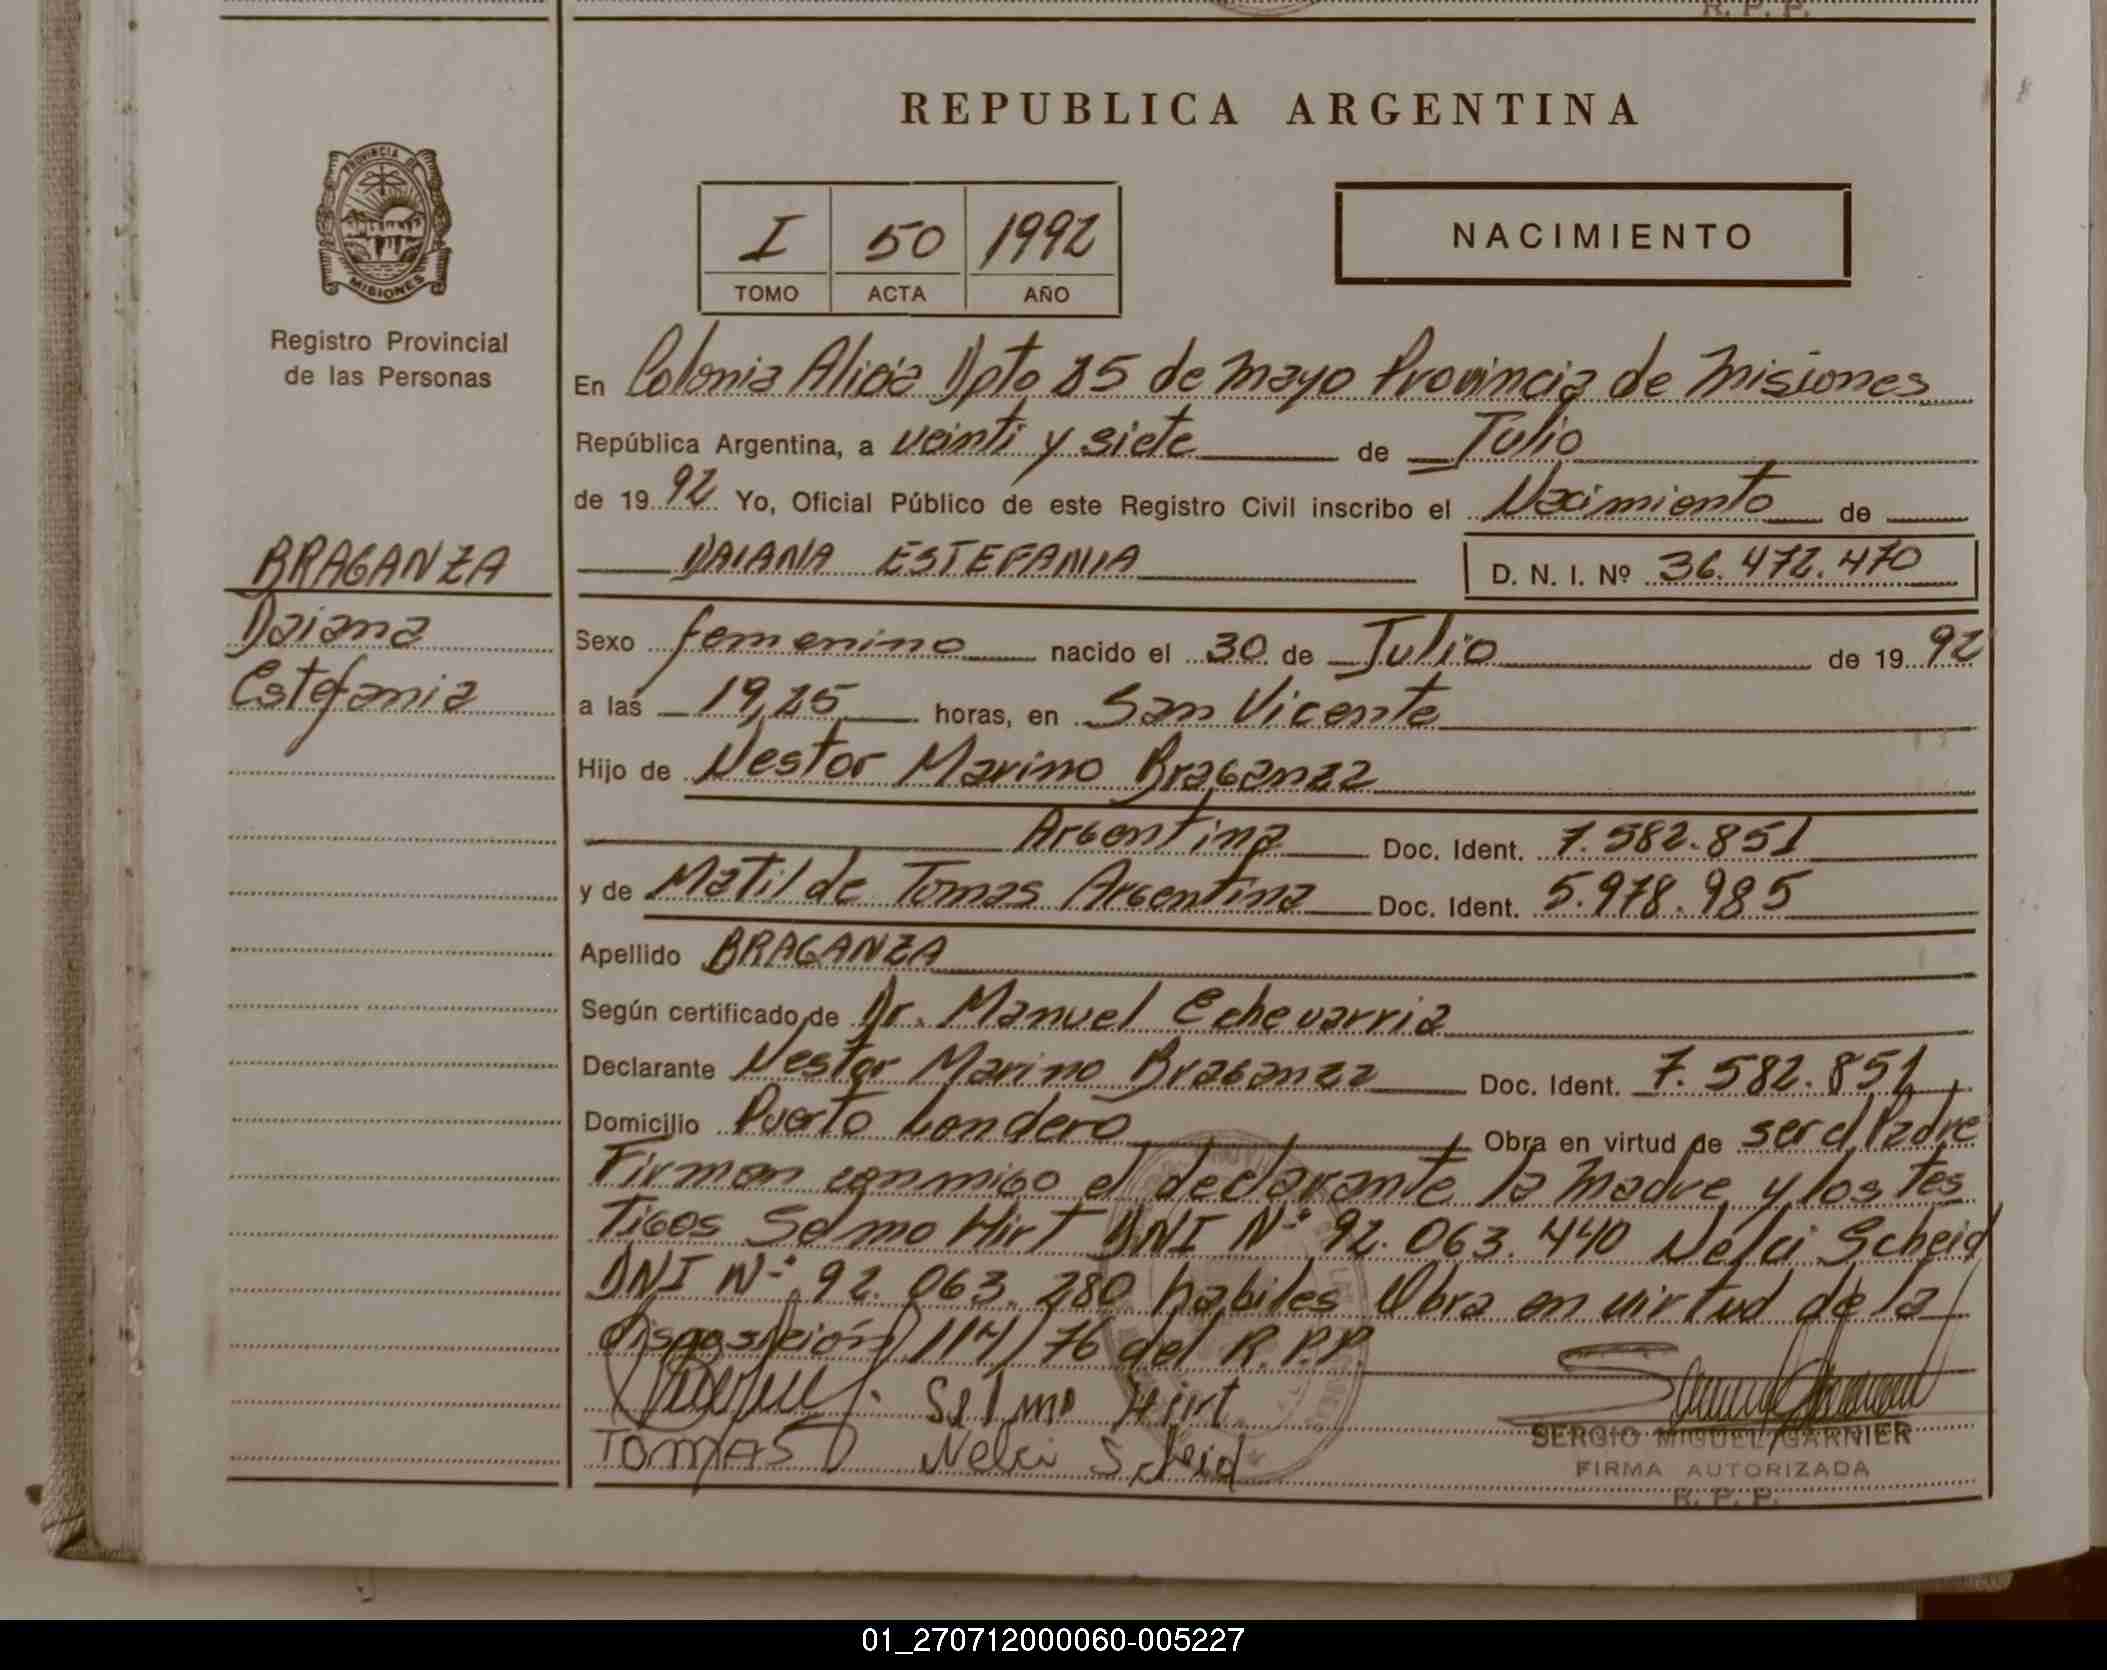 R. P. P.
REPUBLICA ARGENTINA
PROVINCIA DE
MISIONES
Registro Provincial
de las Personas
I 50 1992
TOMO ACTA AÑO
NACIMIENTO
En Colonia Alicia Dpto 25 de Mayo Provincia de Misiones
República Argentina, a veinti y siete de Julio
de 1992 Yo, Oficial Público de este Registro Civil inscribo el Nacimiento de
BRAGANZA
Daiana
Estefania
DAIANA ESTEFANIA D. N. I. Nº 36.472.470
Sexo femenino nacido el 30 de Julio de 1992
a las 19,25 horas, en San Vicente
Hijo de Nestor Marino Braganza
Argentina Doc. Ident. 7.582.851
y de Matilde Tomas Argentina Doc. Ident. 5.978.985
Apellido BRAGANZA
Según certificado de Dr. Manuel Echevarria
Declarante Nestor Marino Braganza Doc. Ident. 7.582.851
Domicilio Puerto Londero Obra en virtud de ser el Padre
Firman conmigo el declarante la Madre y los tes
tigos Selmo Hirt DNI Nº 92.063.440 Nelci Scheid
DNI Nº 92.063.280 habiles Obra en virtud de la
disposición 114/76 del R.P.P.
Selmo Hirt
TOMAS Nelci Scheid
SERGIO MIGUEL GARNIER
FIRMA AUTORIZADA
R. P. P.
01_270712000060-005227